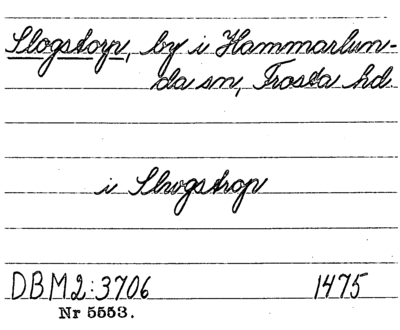 Slogstorp, by i Hammarlun-
da sn, Frosta hd
i Slwgstrop
DBM2:3706 1475
Nr 5553.